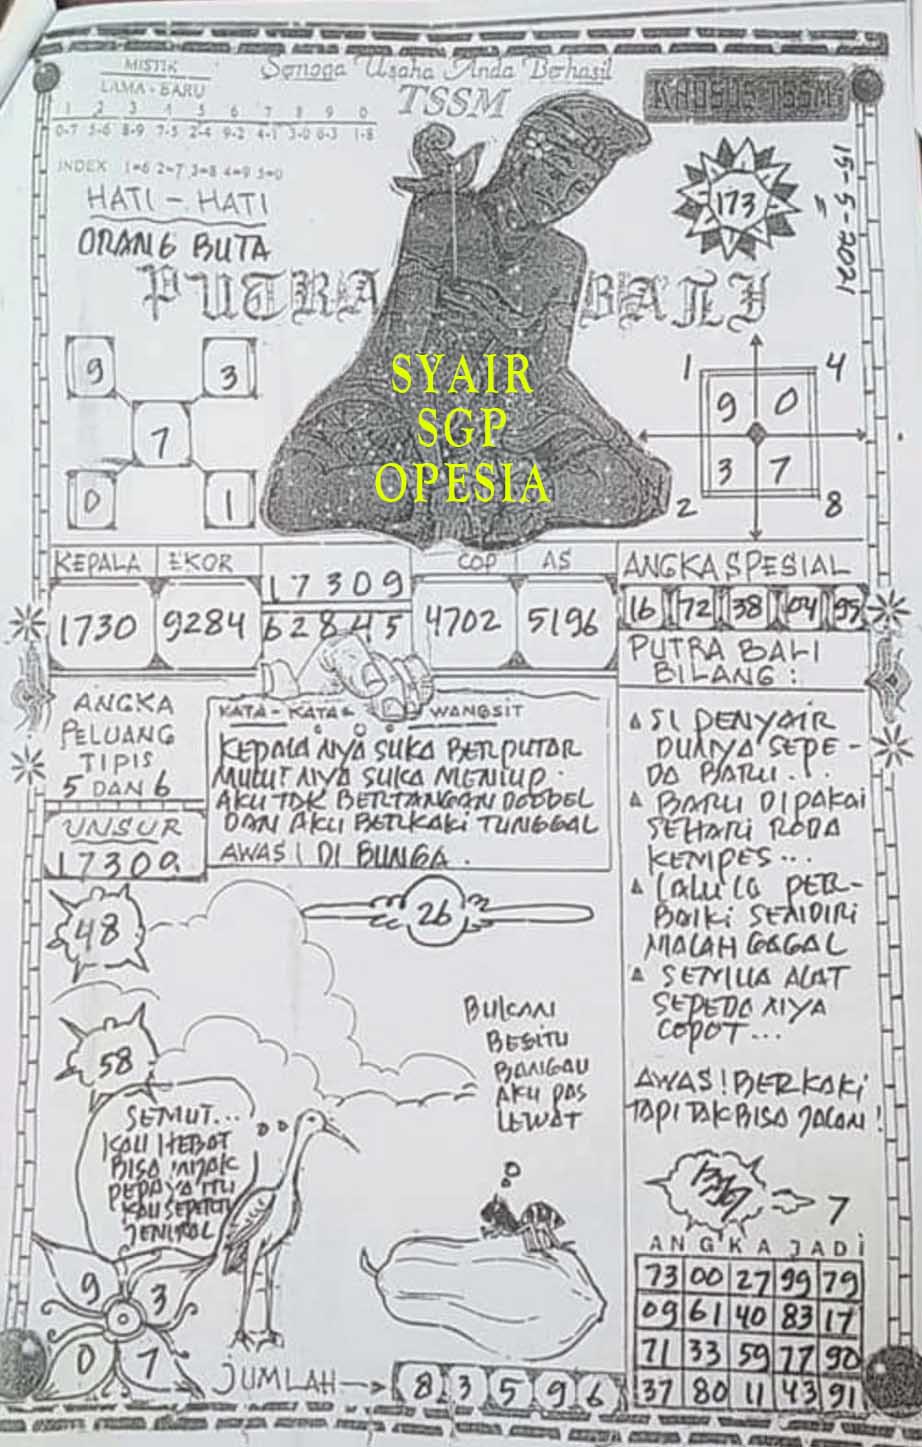 MISTIK
LAMA - BARU
1 2 3 4 5 6 7 8 9 0
0-7 5-6 8-9 7-5 2-4 9-2 4-1 3-0 6-3 1-8
INDEX 1=6 2=7 3=8 4=9 5=0
Semoga Usaha Anda Berhasil
TSSM
KHUSUS TSSM
173
15-5-2021
HATI - HATI
ORANG BUTA
PUTRA BALI
9 3
7
0 1
SYAIR
SGP
OPESIA
1 4
9 0
3 7
2 8
KEPALA EKOR
1730 9284
17309
62845
COP AS
4702 5196
ANGKA SPESIAL
16 72 38 04 95
PUTRA BALI
BILANG :
SI PENYAIR
PUNYA SEPE -
DA BARU...
BARU DIPAKAI
SEHARI RODA
KEMPES...
LALU IA PER-
BAIKI SENDIRI
MALAH GAGAL
SEMUA ALAT
SEPEDA NYA
COPOT...
AWAS! BERKAKI
TAPI TAK BISA JALAN!
ANGKA
PELUANG
TIPIS
5 DAN 6
UNSUR
17309
KATA - KATA WANGSIT
KEPALA NYA SUKA BERPUTAR
MULUT NYA SUKA MENIUP.
AKU TAK BERTANGAN DOBBEL
DAN AKU BERKAKI TUNGGAL
AWAS! DI BUNGA.
48
26
58
BUKAN
BEGITU
BANGAU
AKU PAS
LEWAT
SEMUT...
KAU HEBAT
BISA
PEPAYA ITU
KAU SEPERTI
JENDRAL
9 3
0 7
JUMLAH
8 3 5 9 6
7
ANGKA JADI
73 00 27 99 79
09 61 40 83 17
71 33 59 77 90
37 80 11 43 91